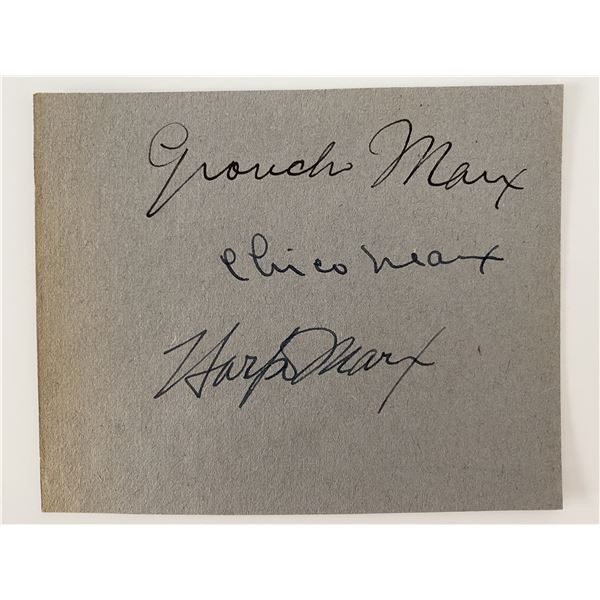 Groucho Marx
Chico Marx
Harpo Marx